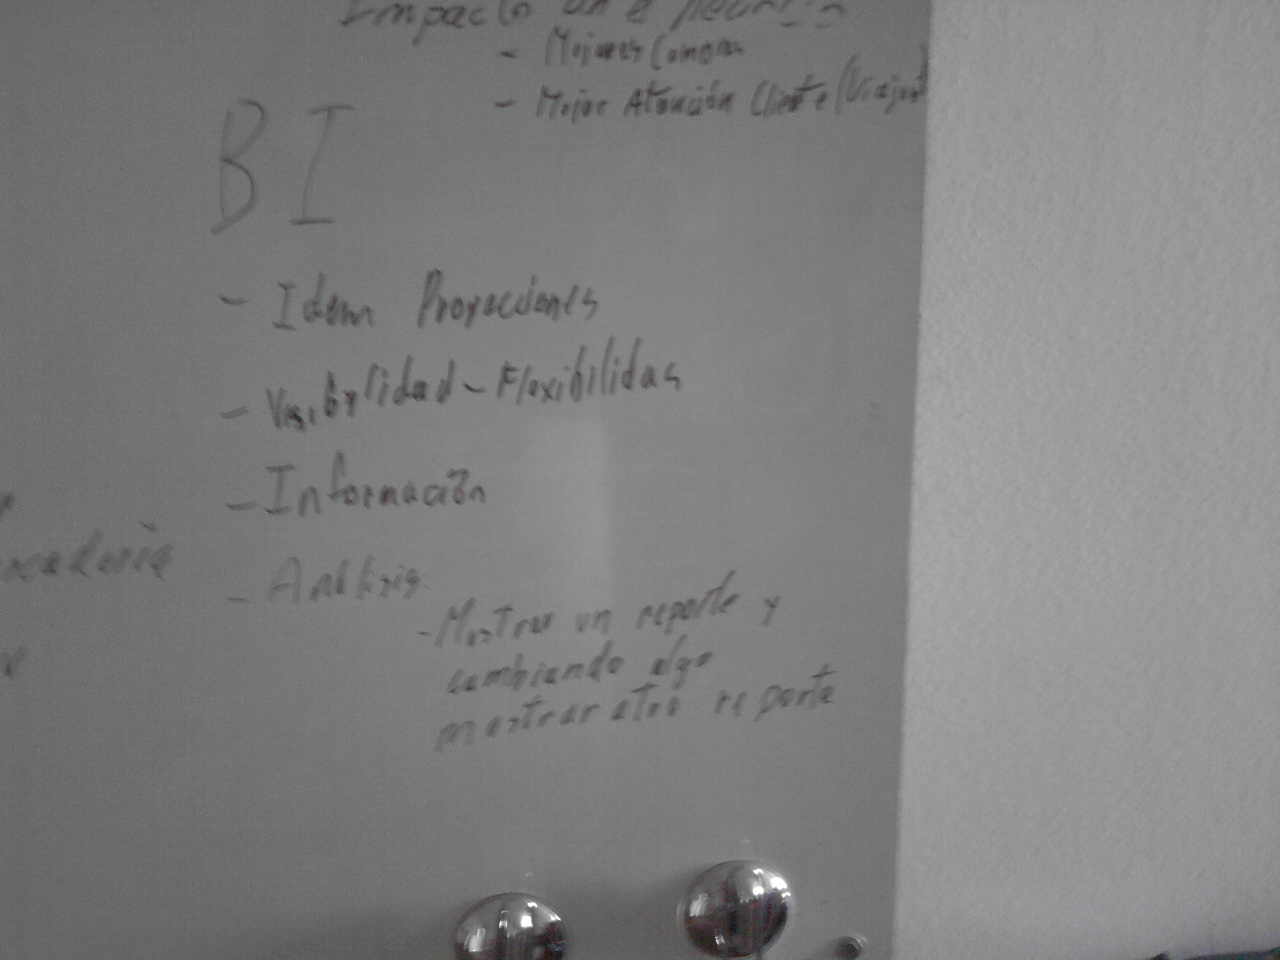 Impacto en el negocio
- Mejores Compras
- Mejor Atención Cliente (Viajant
BI
- Idem Proyecciones
- Visibilidad - Flexibilidas
- Información
- Análisis:
- Mostrar un reporte y
cambiando algo
mostrar otro reporte